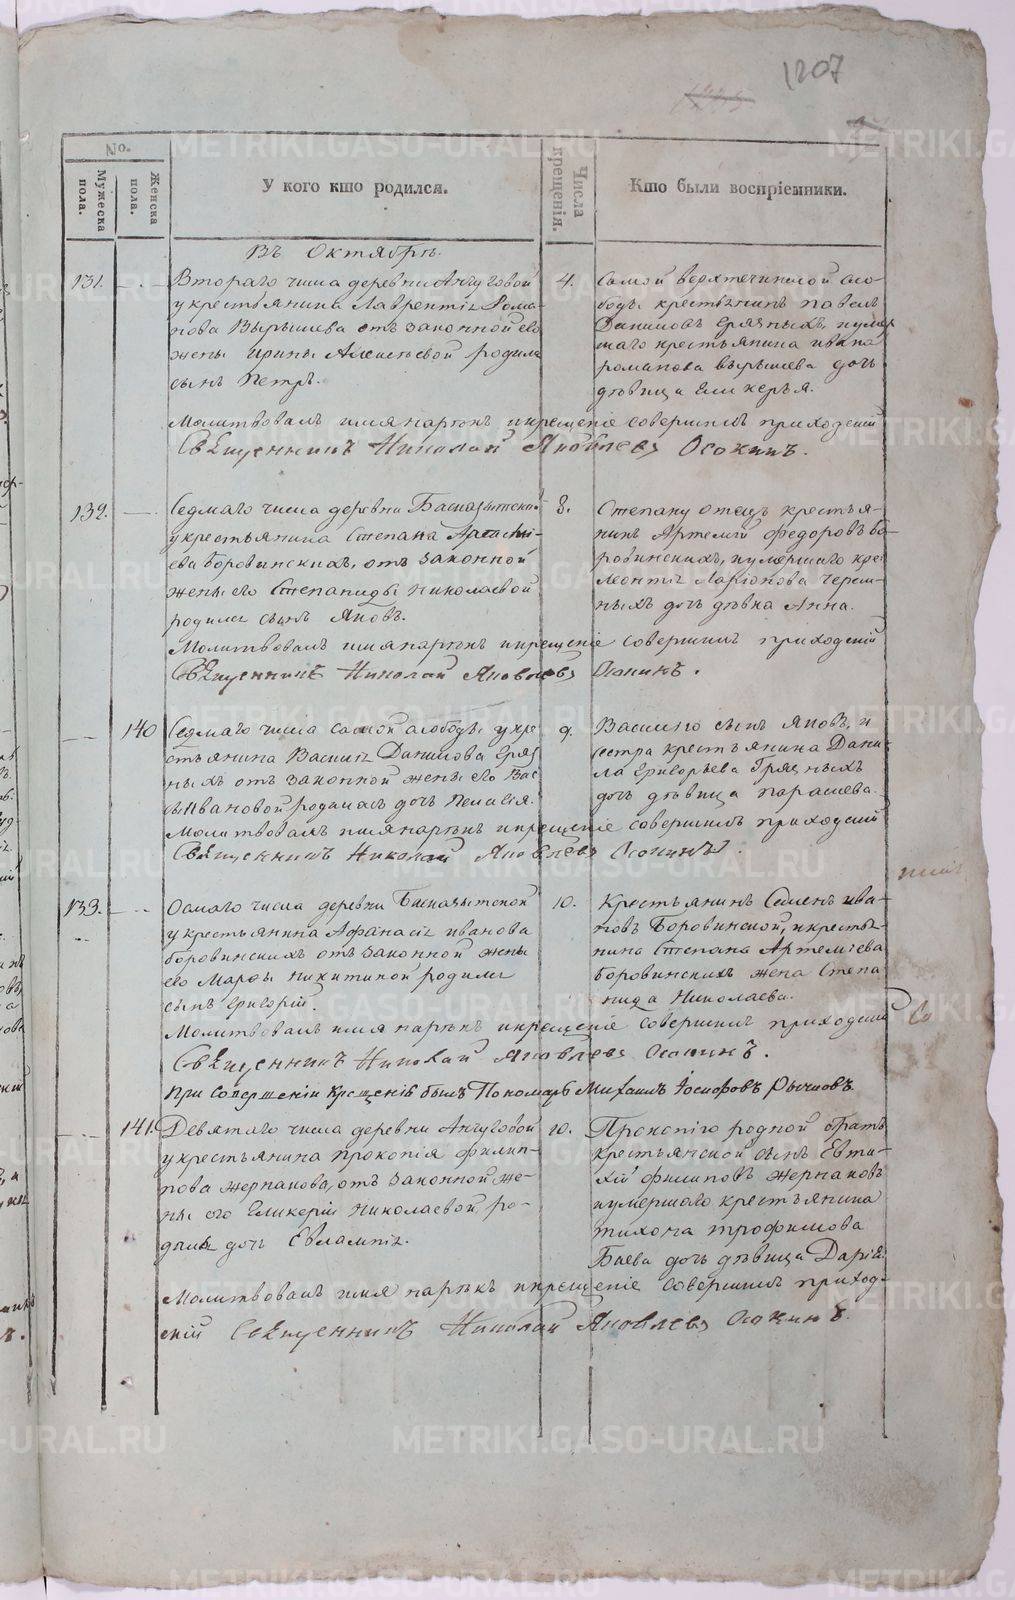 1207
No.
Мужеска пола.
Женска пола.
У кого кто родился.
Числа крещенія.
Кто были воспріемники.
Въ Октябрѣ.
131.
Втораго числа деревни Анчуговой
у крестьянина Лаврентія Рома-
нова Вырышева отъ законной его
жены Ирины Алексеевой родился
сынъ Петръ.
4.
Самой Верхтечинской сло-
боды крестьянинъ Павелъ
Даниловъ Грязныхъ, и умер-
шаго крестьянина Ивана
Романова Вырышева дочь
дѣвица Гликерья.
Молитвовалъ имя нарѣкъ и крещеніе совершилъ приходскій
Священникъ Николай Яковлевъ Осокинъ.
132.
Седмаго числа деревни
у крестьянина Степана Артеми-
ева Боровинскихъ, отъ законной
жены его Степаниды Николаевой
родился сынъ Яковъ.
8.
Степану отецъ крестья-
нинъ Артемій Федоровъ Бо-
ровинскихъ, и умершаго кре:
Леонтія Ларіонова Череш-
ныхъ дочь дѣвка Анна.
Молитвовалъ имя нарѣкъ и крещеніе совершилъ приходскій
Священникъ Николай Яковлевъ Осокинъ.
140
Седмаго числа самой слободы у кре-
стьянина Василія Данилова Гряз
ныхъ отъ законной жены его Вас
сы Ивановой родилась дочь Пелагія.
9.
Василию сынъ Яковъ, и
сестра крестьянина Дани-
ла Григорьева Грязныхъ
дочь дѣвица Параскева.
Молитвовалъ имя нарѣкъ и крещеніе совершилъ приходскій
Священникъ Николай Яковлевъ Осокинъ.
133.
Осмаго числа деревни
у крестьянина Афанасія Иванова
Боровинскихъ отъ законной жены
его Марфы Никитиной родился
сынъ Григорій.
10.
Крестьянинъ Семенъ Ива-
новъ Боровинской, и крестья-
нина Степана Артемиева
Боровинскихъ жена Степа
нида Николаева.
Молитвовалъ имя нарѣкъ и крещеніе совершилъ приходский
Священникъ Николай Яковлевъ Осокинъ.
При совершеніи крещеній былъ Пономарь Михаилъ Іосифовъ Рычковъ.
141.
Девятаго числа деревни Анчуговой
у крестьянина Прокопія Филип-
пова Жернакова, отъ законной же-
ны его Гликеріи Николаевой, ро-
дилась дочь Евлампія.
10.
Прокопію родной братъ
крестьянской сынъ Евти-
хій Филиповъ Жернаковъ
и умершаго крестьянина
Тихона Трофимова
Баева дочь дѣвица Дарія.
Молитвовалъ имя нарѣкъ и крещеніе совершилъ приход-
скій Священникъ Николай Яковлевъ Осокинъ.